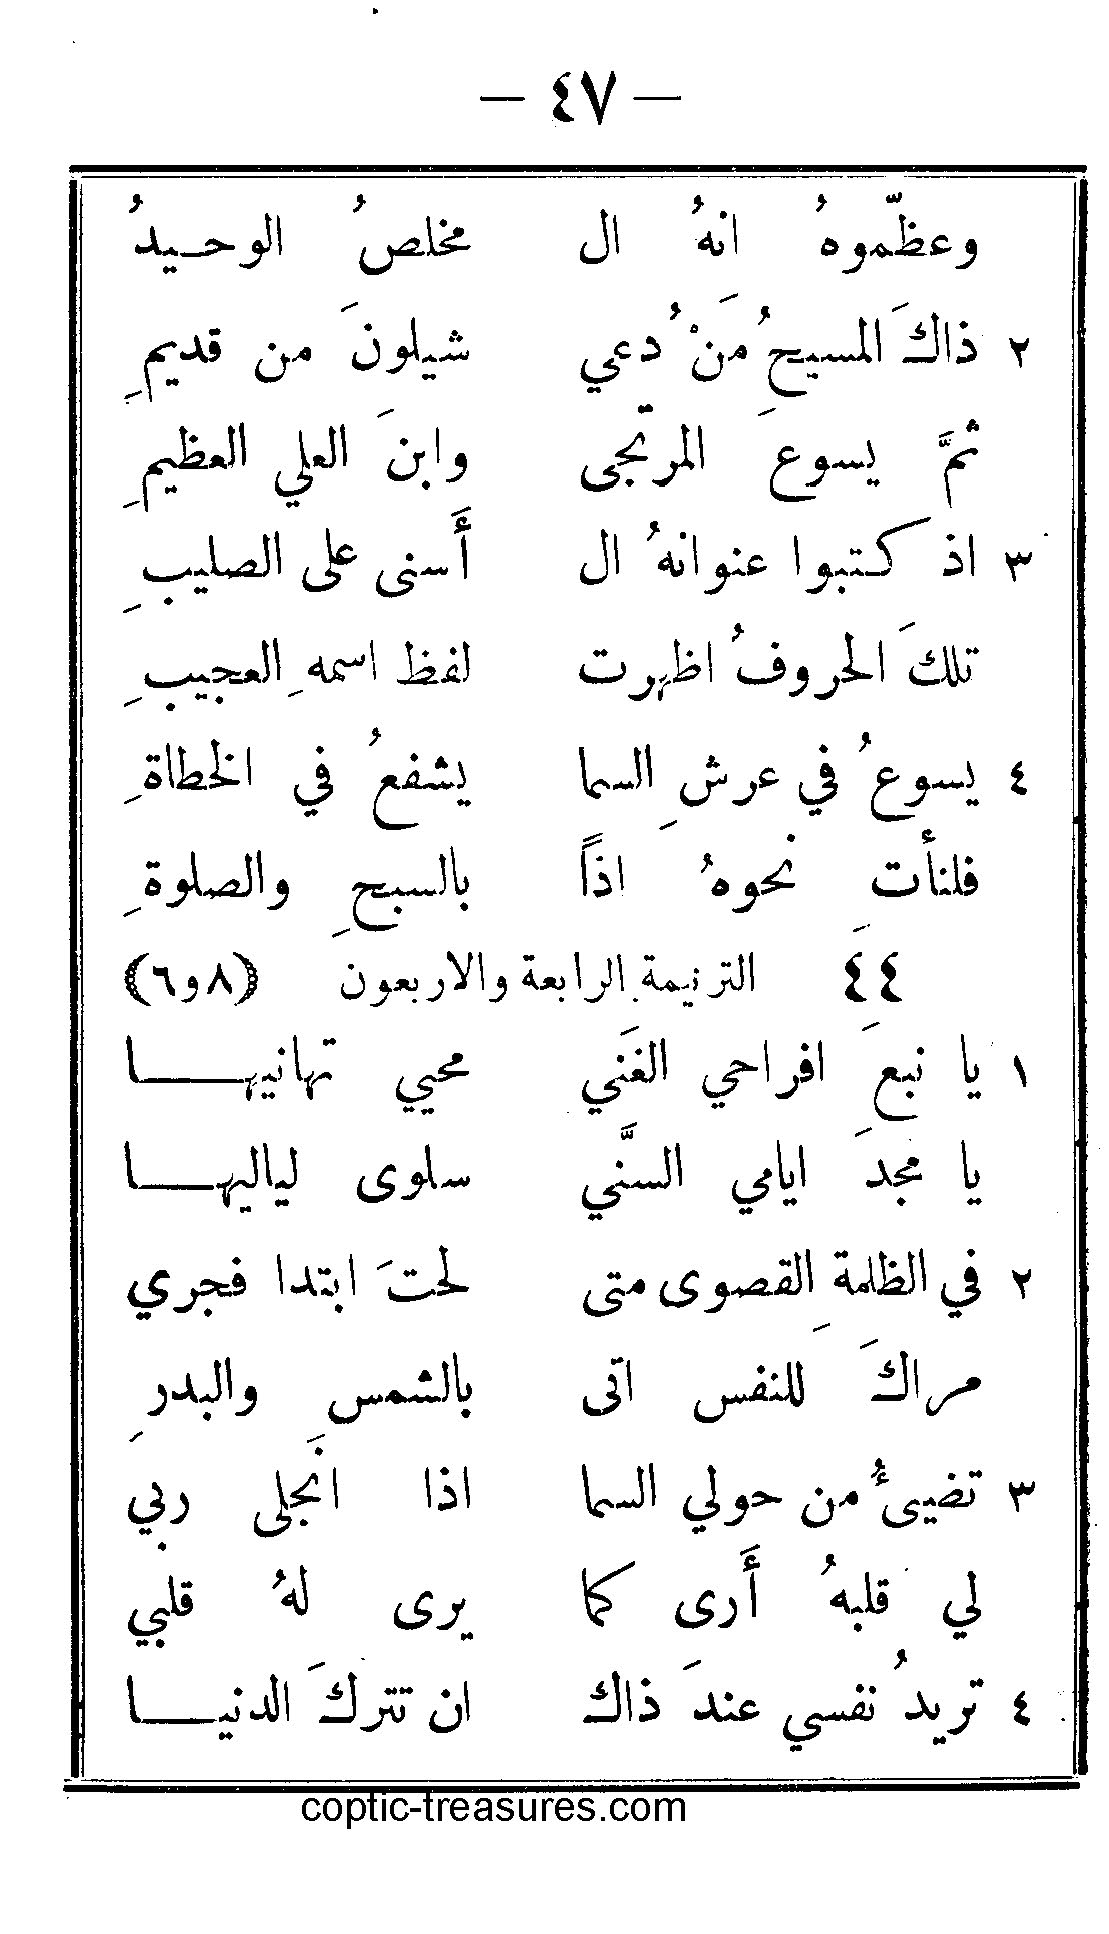 — ٤٧ —
وعظّموهُ انهُ ال مخلصُ الوحيدُ
٢ ذاكَ المسيحُ مَنْ دُعي شيلونَ من قديمِ
ثمَّ يسوعَ المرتّجى وابنَ العلي العظيمِ
٣ اذ كتبوا عنوانهُ ال أَسنى على الصليبِ
تلكَ الحروفُ اظهرت لفظ اسمهِ العجيبِ
٤ يسوعُ في عرشِ السما يشفعُ في الخطاةِ
فلنأت نحوهُ اذاً بالسبحِ والصلوةِ
٤٤ الترنيمة الرابعة والاربعون (٨و٦)
١ يا نبعَ افراحي الغَني محيي تهانيهـا
يا مجدَ ايامي السنَّي سلوى لياليهـا
٢ في الظلمةِ القصوى متى لحتَ ابتدا فجري
مراكَ للنفس اتى بالشمسِ والبدرِ
٣ تضيئُ من حولي السما اذا انَجلى ربي
لي قلبهُ أَرى كما يرى لهُ قلبي
٤ تريدُ نفسي عندَ ذاك ان تتركَ الدنيـا
coptic-treasures.com